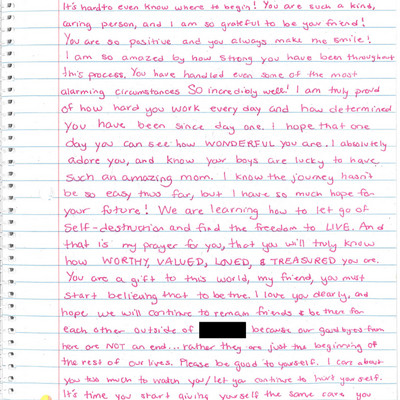 It's hard to even know where to begin! You are such a kind,
caring person, and I am so grateful to be your friend!
You are so positive and you always make me smile!
I am so amazed by how strong you have been throughout
this process. You have handled even some of the most
alarming circumstances SO incredibly well! I am truly proud
of how hard you work every day and how determined
you have been since day one. i hope that one
day you can see how WONDERFUL you are. I absolutely
adore you, and know your boys are lucky to have
such an amazing mom. I know the journey hasn't
be so easy thus far, but I have so much hope for
your future! We are learning how to let go of
self-destruction and find the freedom to LIVE. And
that is my prayer for you, that you will truly know
how WORTHY, VALUED, LOVED, & TREASURED you are.
You are a gift to this world, my friend, you must
start believing that to be true. I love you dearly, and
hope we will continue to remain friends & be there for
each other outside of because our goodbyes from
here are NOT an end... rather they are just the beginning of
the rest of our lives. Please be good to yourself. I care about
you too much to watch you/let you continue to hurt yourself.
It's time you start giving yourself the same care you